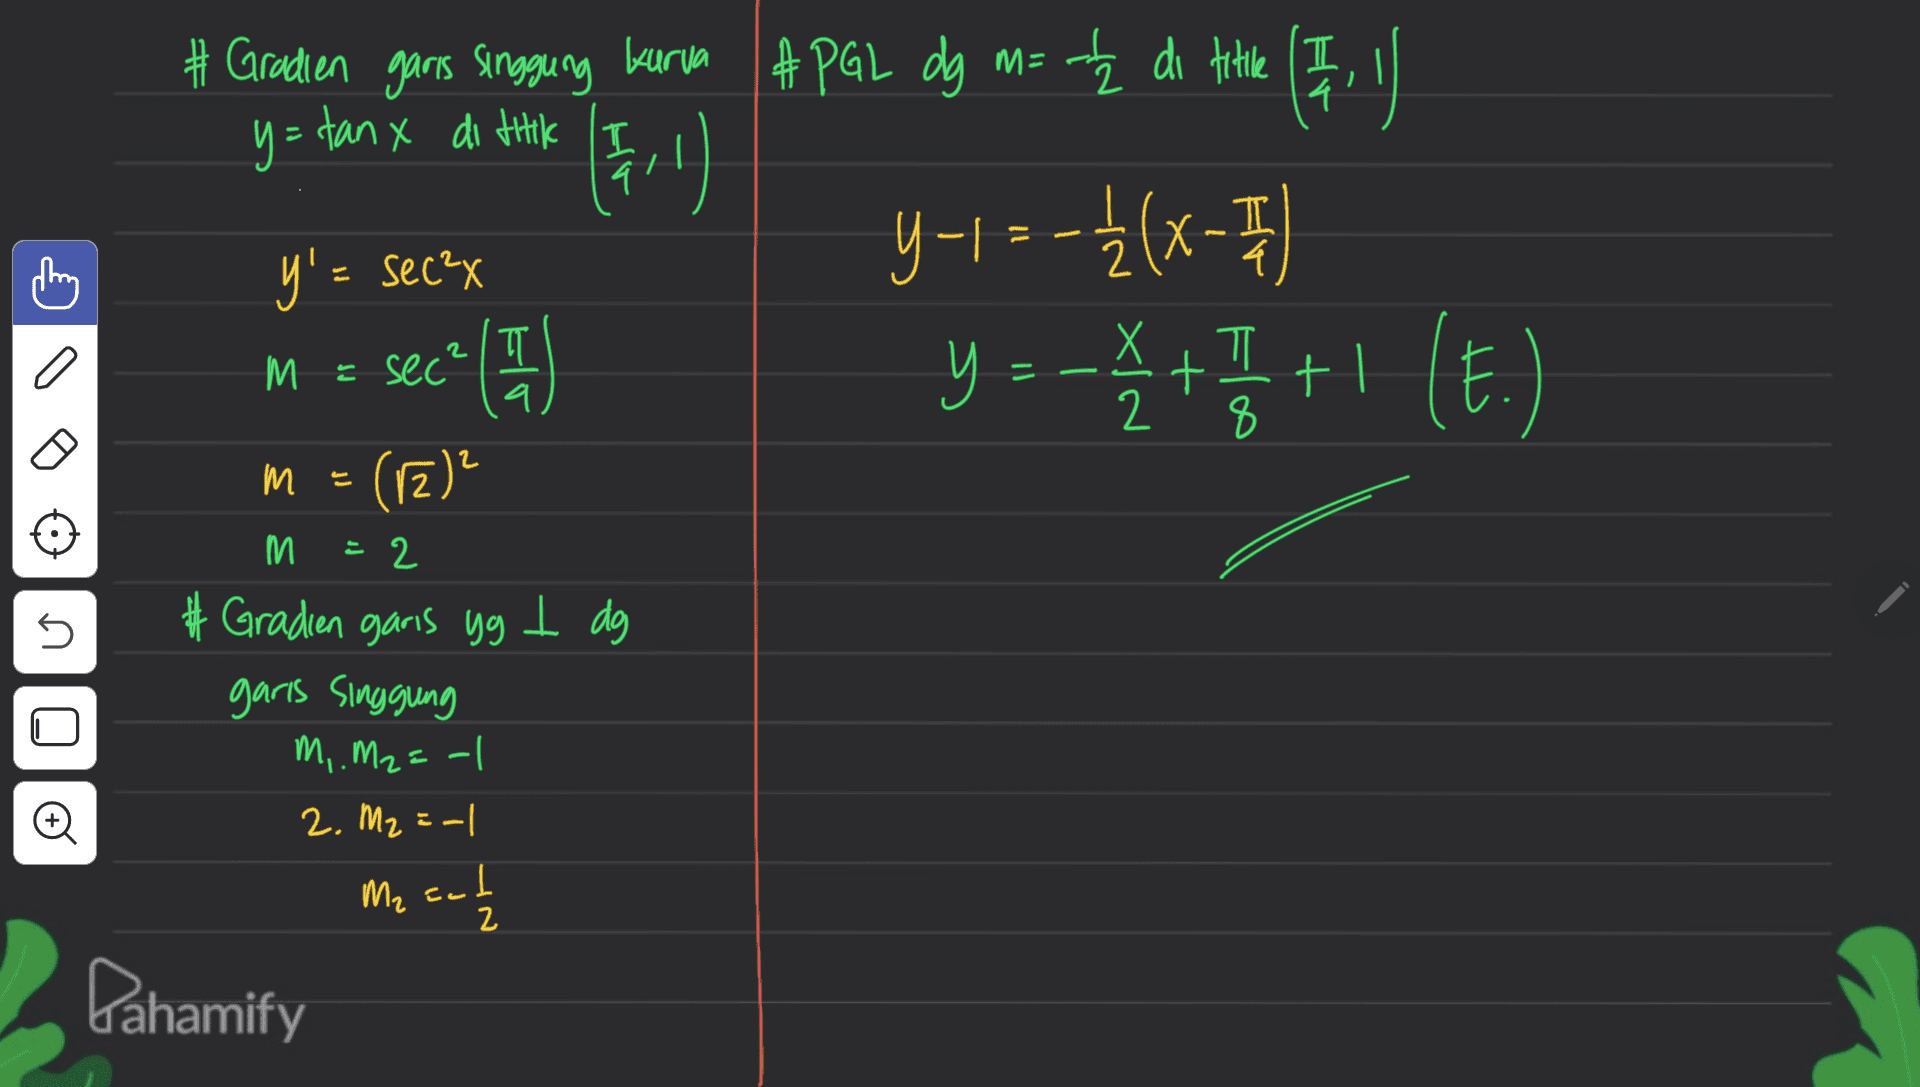 # Gradien garis singgung kurva
y = tan x di titik (π/4, 1)
y' = sec²x
m = sec²(π/4)
m = (√2)²
m = 2
# Gradien garis yg ⊥ dg
garis singgung
m₁. m₂ = -1
2. m₂ = -1
m₂ = -1/2
# PGL dg m = -1/2 di titik (π/4, 1)
y - 1 = -1/2 (x - π/4)
y = -x/2 + π/8 + 1 (E.)
Pahamify